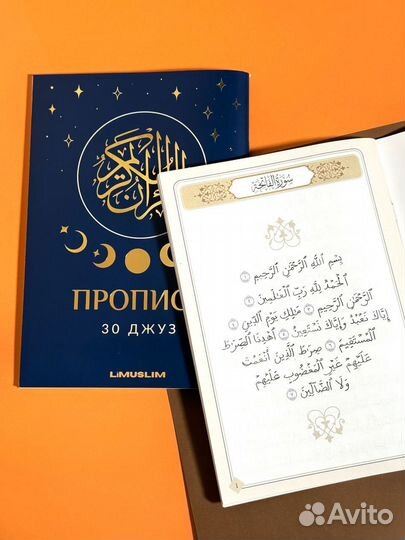 القرآن الكريم
ПРОПИС
30 ДЖУЗ
LIMUSLIM
سورة الفاتحة
بِسْمِ اللَّهِ الرَّحْمَٰنِ الرَّحِيمِ ١
الْحَمْدُ لِلَّهِ رَبِّ الْعَالَمِينَ ٢
الرَّحْمَٰنِ الرَّحِيمِ ٣ مَالِكِ يَوْمِ الدِّينِ ٤
إِيَّاكَ نَعْبُدُ وَإِيَّاكَ نَسْتَعِينُ ٥ اهْدِنَا الصِّرَاطَ
الْمُسْتَقِيمَ ٦ صِرَاطَ الَّذِينَ أَنْعَمْتَ
عَلَيْهِمْ غَيْرِ الْمَغْضُوبِ عَلَيْهِمْ
وَلَا الضَّالِّينَ ٧
١
Avito